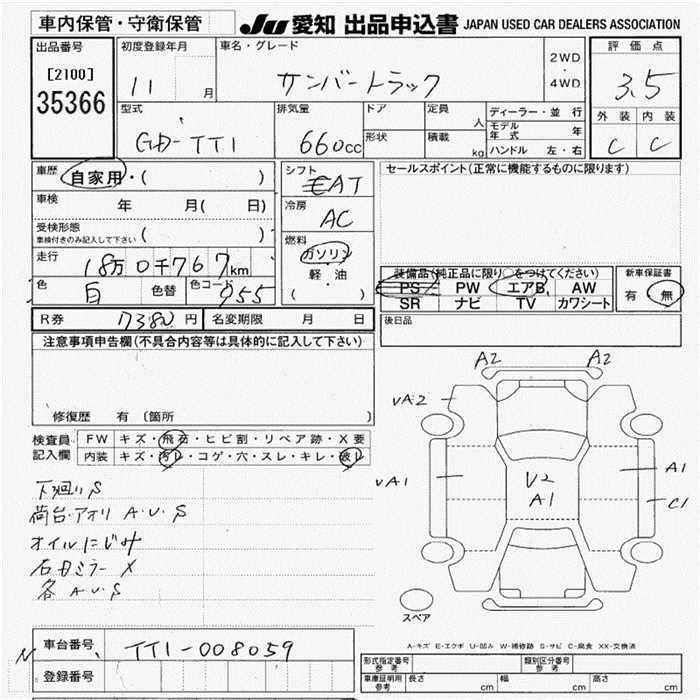 車内保管・守衛保管 JU 愛知 出品申込書 JAPAN USED CAR DEALERS ASSOCIATION
出品番号 初度登録年月 車名・グレード 2WD・4WD 評価点
[2100] 11 月 サンバートラック 3.5
35366
型式 排気量 ドア 定員 人 ディーラー・並行 外装 内装
GD-TT1 660cc 形状 積載 kg モデル年式 年 C C
ハンドル 左・右
車歴 自家用・( ) シフト AT セールスポイント(正常に機能するものに限ります)
車検 年 月( 日) 冷房 AC
受検形態 ( )
車検付きのみ記入して下さい
燃料 ガソリン
軽・油
( )
走行 18万0千767km
色 白 色替 色コード 955
装備品(純正品に限り○をつけてください) 新車保証書
PS PW エアB AW 有 無
SR ナビ TV カワシート
R券 7380円 名変期限 月 日 後日品
注意事項申告欄(不具合内容等は具体的に記入して下さい)
修復歴 有 〔箇所 〕
検査員記入欄 FW キズ・飛石・ヒビ割・リペア跡・X要
内装 キズ・汚レ・コゲ・穴・スレ・キレ・破レ
下廻りS
荷台・アオリ A・U・S
オイルにじみ
ミラー X
各A・U・S
A2 A2
A1
U2
A1
C1
スペア
A-キズ E-エクボ U-凹み W-補修跡 S-サビ C-腐食 XX-交換済
車台番号 TT1-008059
登録番号
形式指定番号 参考 類別区分番号 参考
車庫証明用 参考 長さ cm 幅 cm 高さ cm